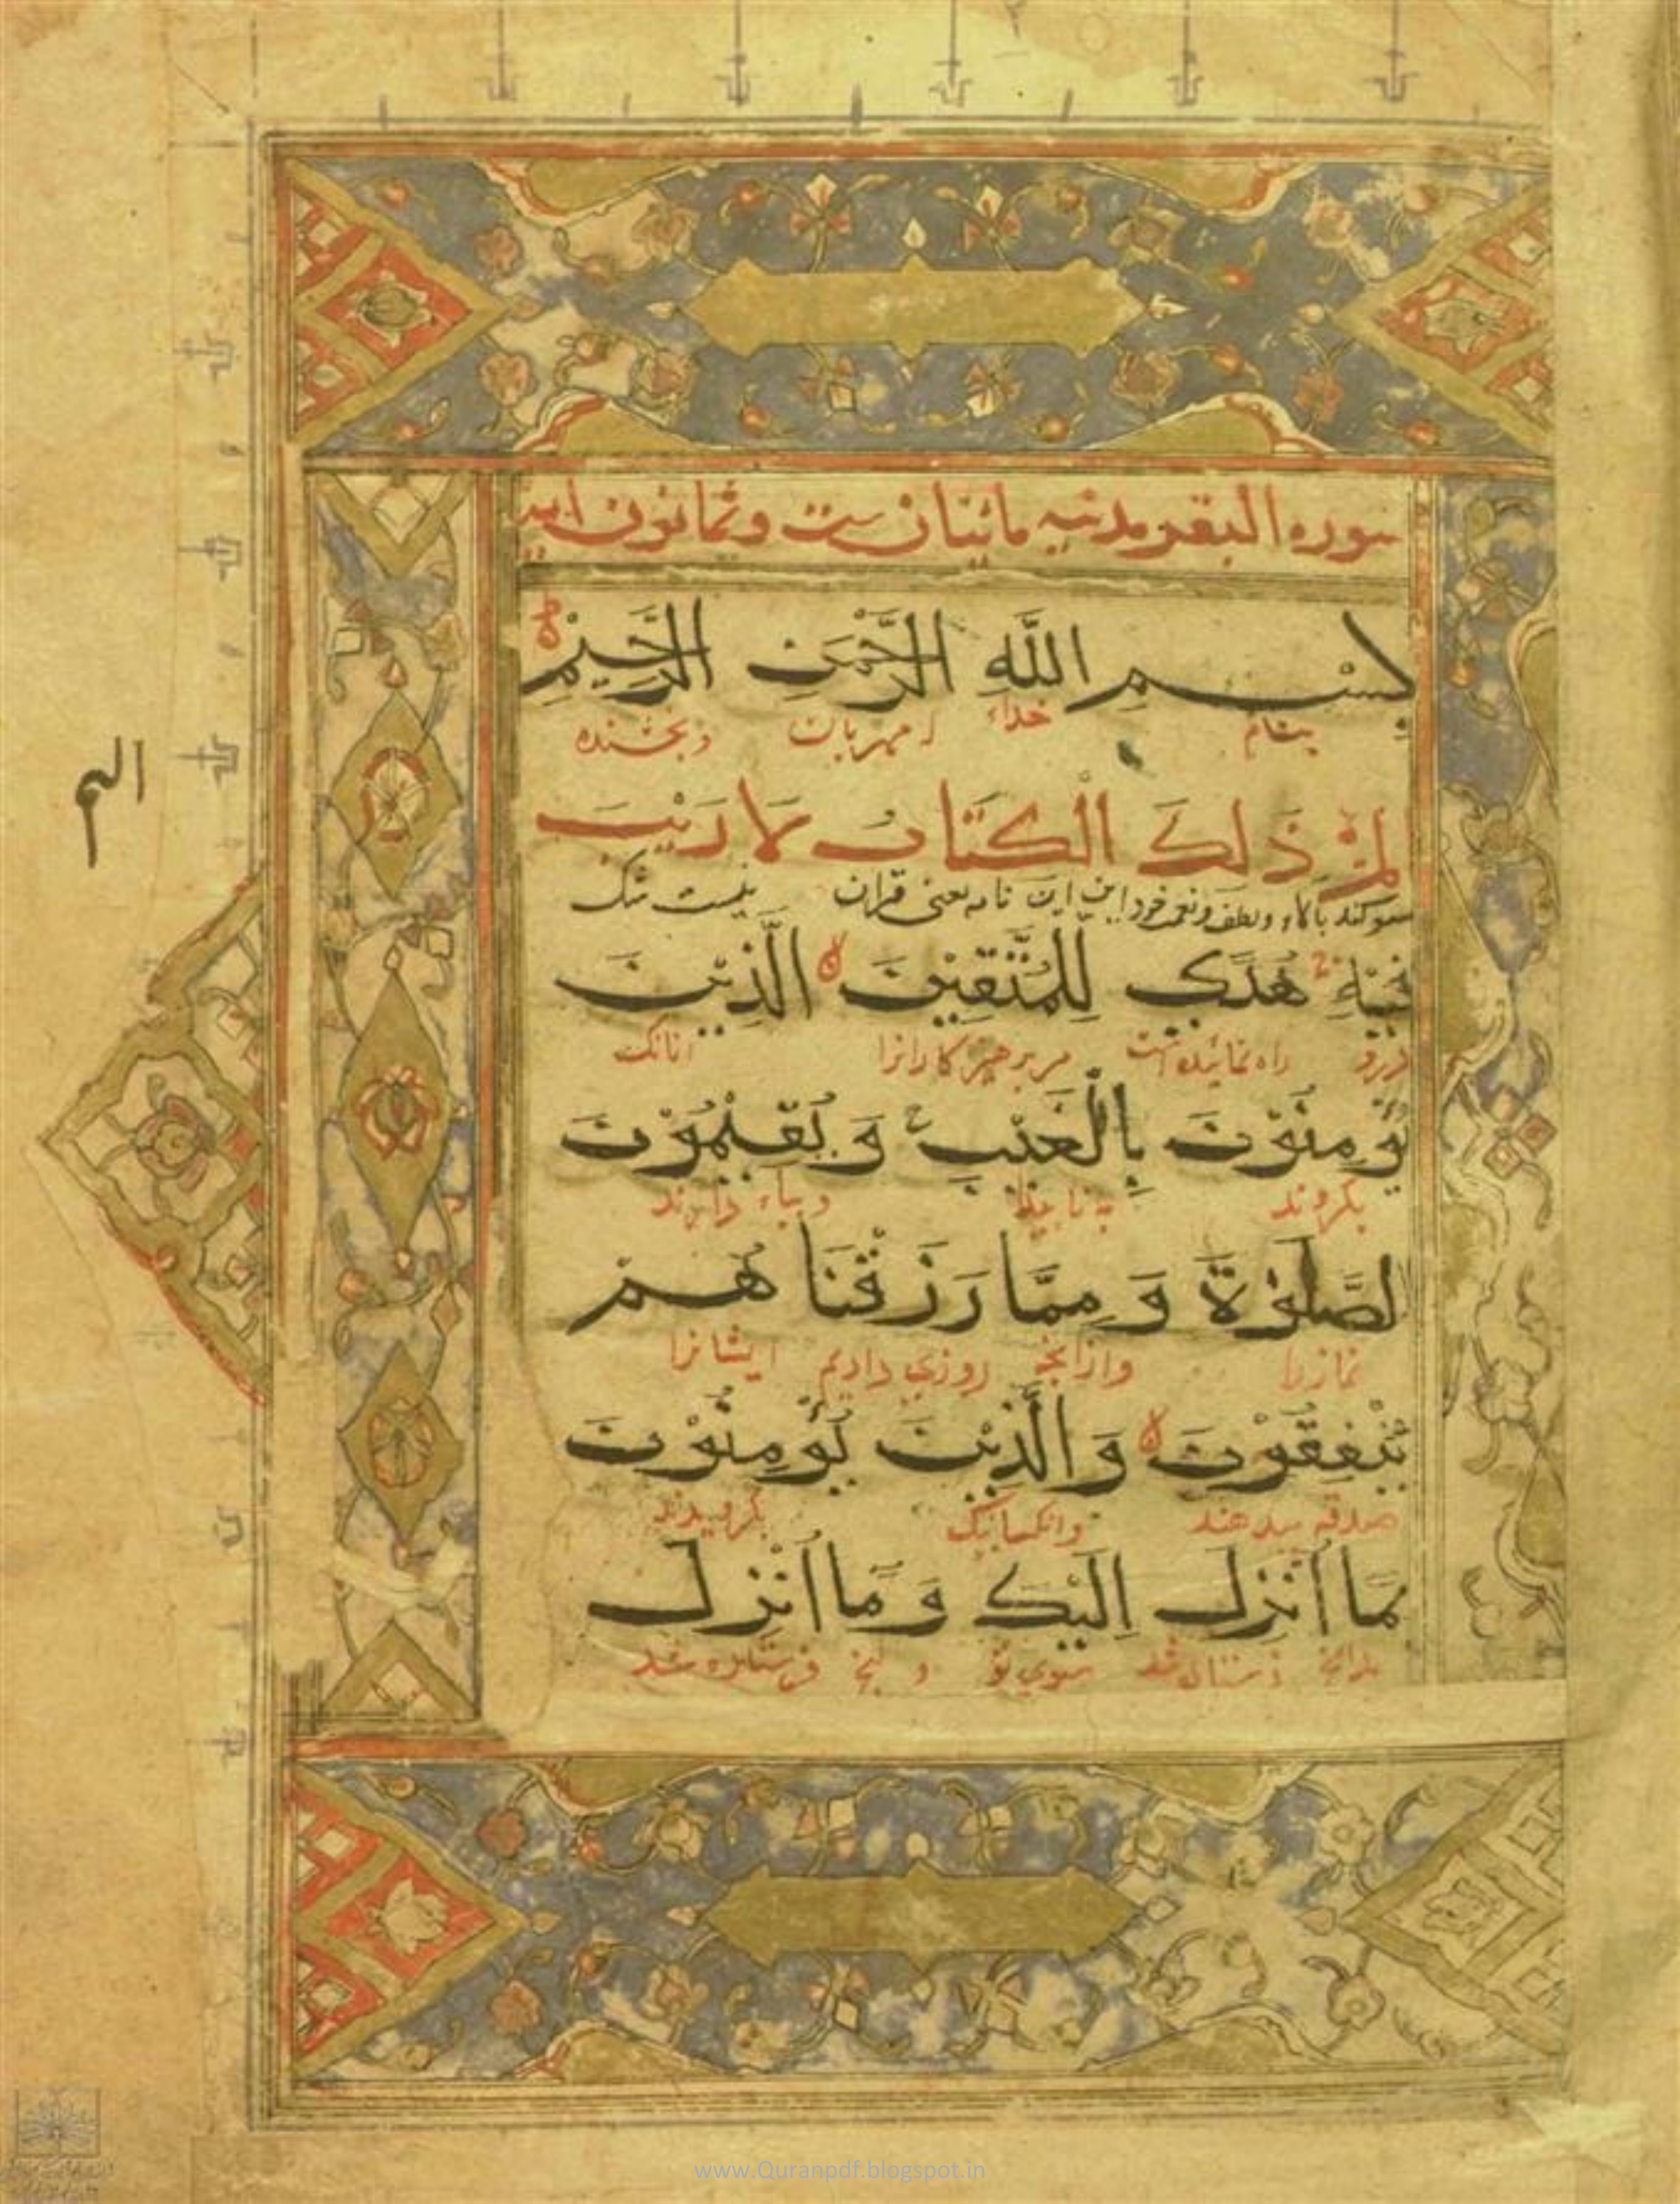 سوره البقره مدنيه مائتان ست وثمانون ايه
بِسْمِ اللَّهِ الرَّحْمَنِ الرَّحِيْمِ
بنام خداء مهربان وبخشنده
الم
الم ذَلِكَ الْكِتَابُ لَا رَيْبَ
سوكند بآلاء ولطف اين نامه يعنى قران نيست شك
فِيْهِ هُدًى لِلْمُتَّقِيْنَ الَّذِيْنَ
درو راه نماينده است مر برهيزكارانرا انانك
يُؤْمِنُوْنَ بِالْغَيْبِ وَ يُقِيْمُوْنَ
بكروند وبباء دارند
لصَّلٰوةَ وَ مِمَّا رَزَقْنَا هُمْ
نمازرا وازانج روزى داديم ايشانرا
يُنْفِقُوْنَ وَالَّذِيْنَ يُؤْمِنُوْنَ
صدقه بيدهند وانكسانيك بكرويدند
بِمَا اُنْزِلَ اِلَيْكَ وَ مَا اُنْزِلَ
بدانج سوى تو و فرستاده شد
www.Quranpdf.blogspot.in